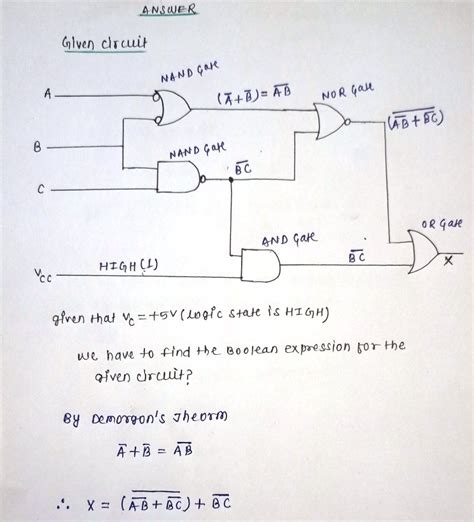 ANSWER
Given circuit
NAND Gate
A
(A̅+B̅)= A̅B̅
NOR Gate
(A̅B̅ + B̅C̅)̅
B
NAND Gate
B̅C̅
C
OR Gate
AND Gate
B̅C̅
X
Vcc HIGH(1)
given that Vc = +5V (Logic state is HIGH)
we have to find the Boolean expression for the
given circuit?
By Demorgon's Theorm
A̅ + B̅ = A̅B̅
∴ X = (A̅B̅ + B̅C̅)̅ + B̅C̅